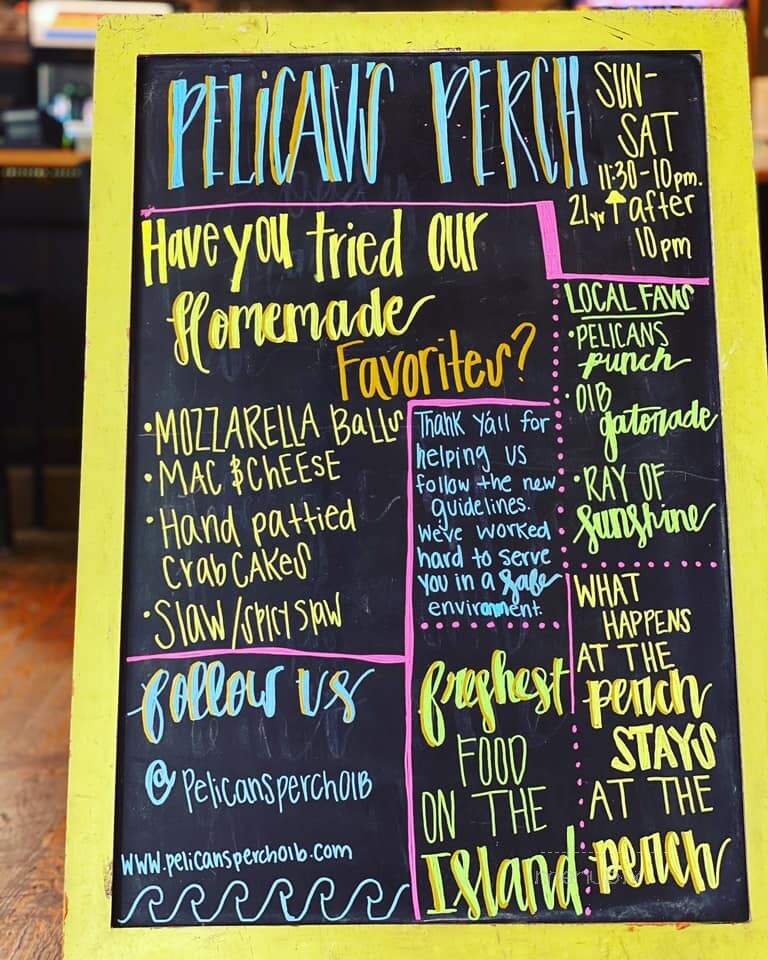 PELICAN'S PERCH
SUN-
SAT
11:30-10pm.
21yr ↑ after
10pm
Have you tried our
Homemade
Favorites?
•MOZZARELLA BaLLS
•MAC $ChEESE
•Hand pattied
CrabCAKes
•Slaw/spicy slaw
Thank yáll for
helping us
follow the new
guidelines.
We've worked
hard to serve
you in a safe
environment.
LOCAL FAVS
•PELICANS
punch
•OIB
gatorade
•RAY OF
sunshine
WHAT
HAPPENS
AT THE
perch
STAYS
AT THE
perch
follow us
@PelicansperchOIB
www.pelicansperchoib.com
freshest
FOOD
ON THE
Island